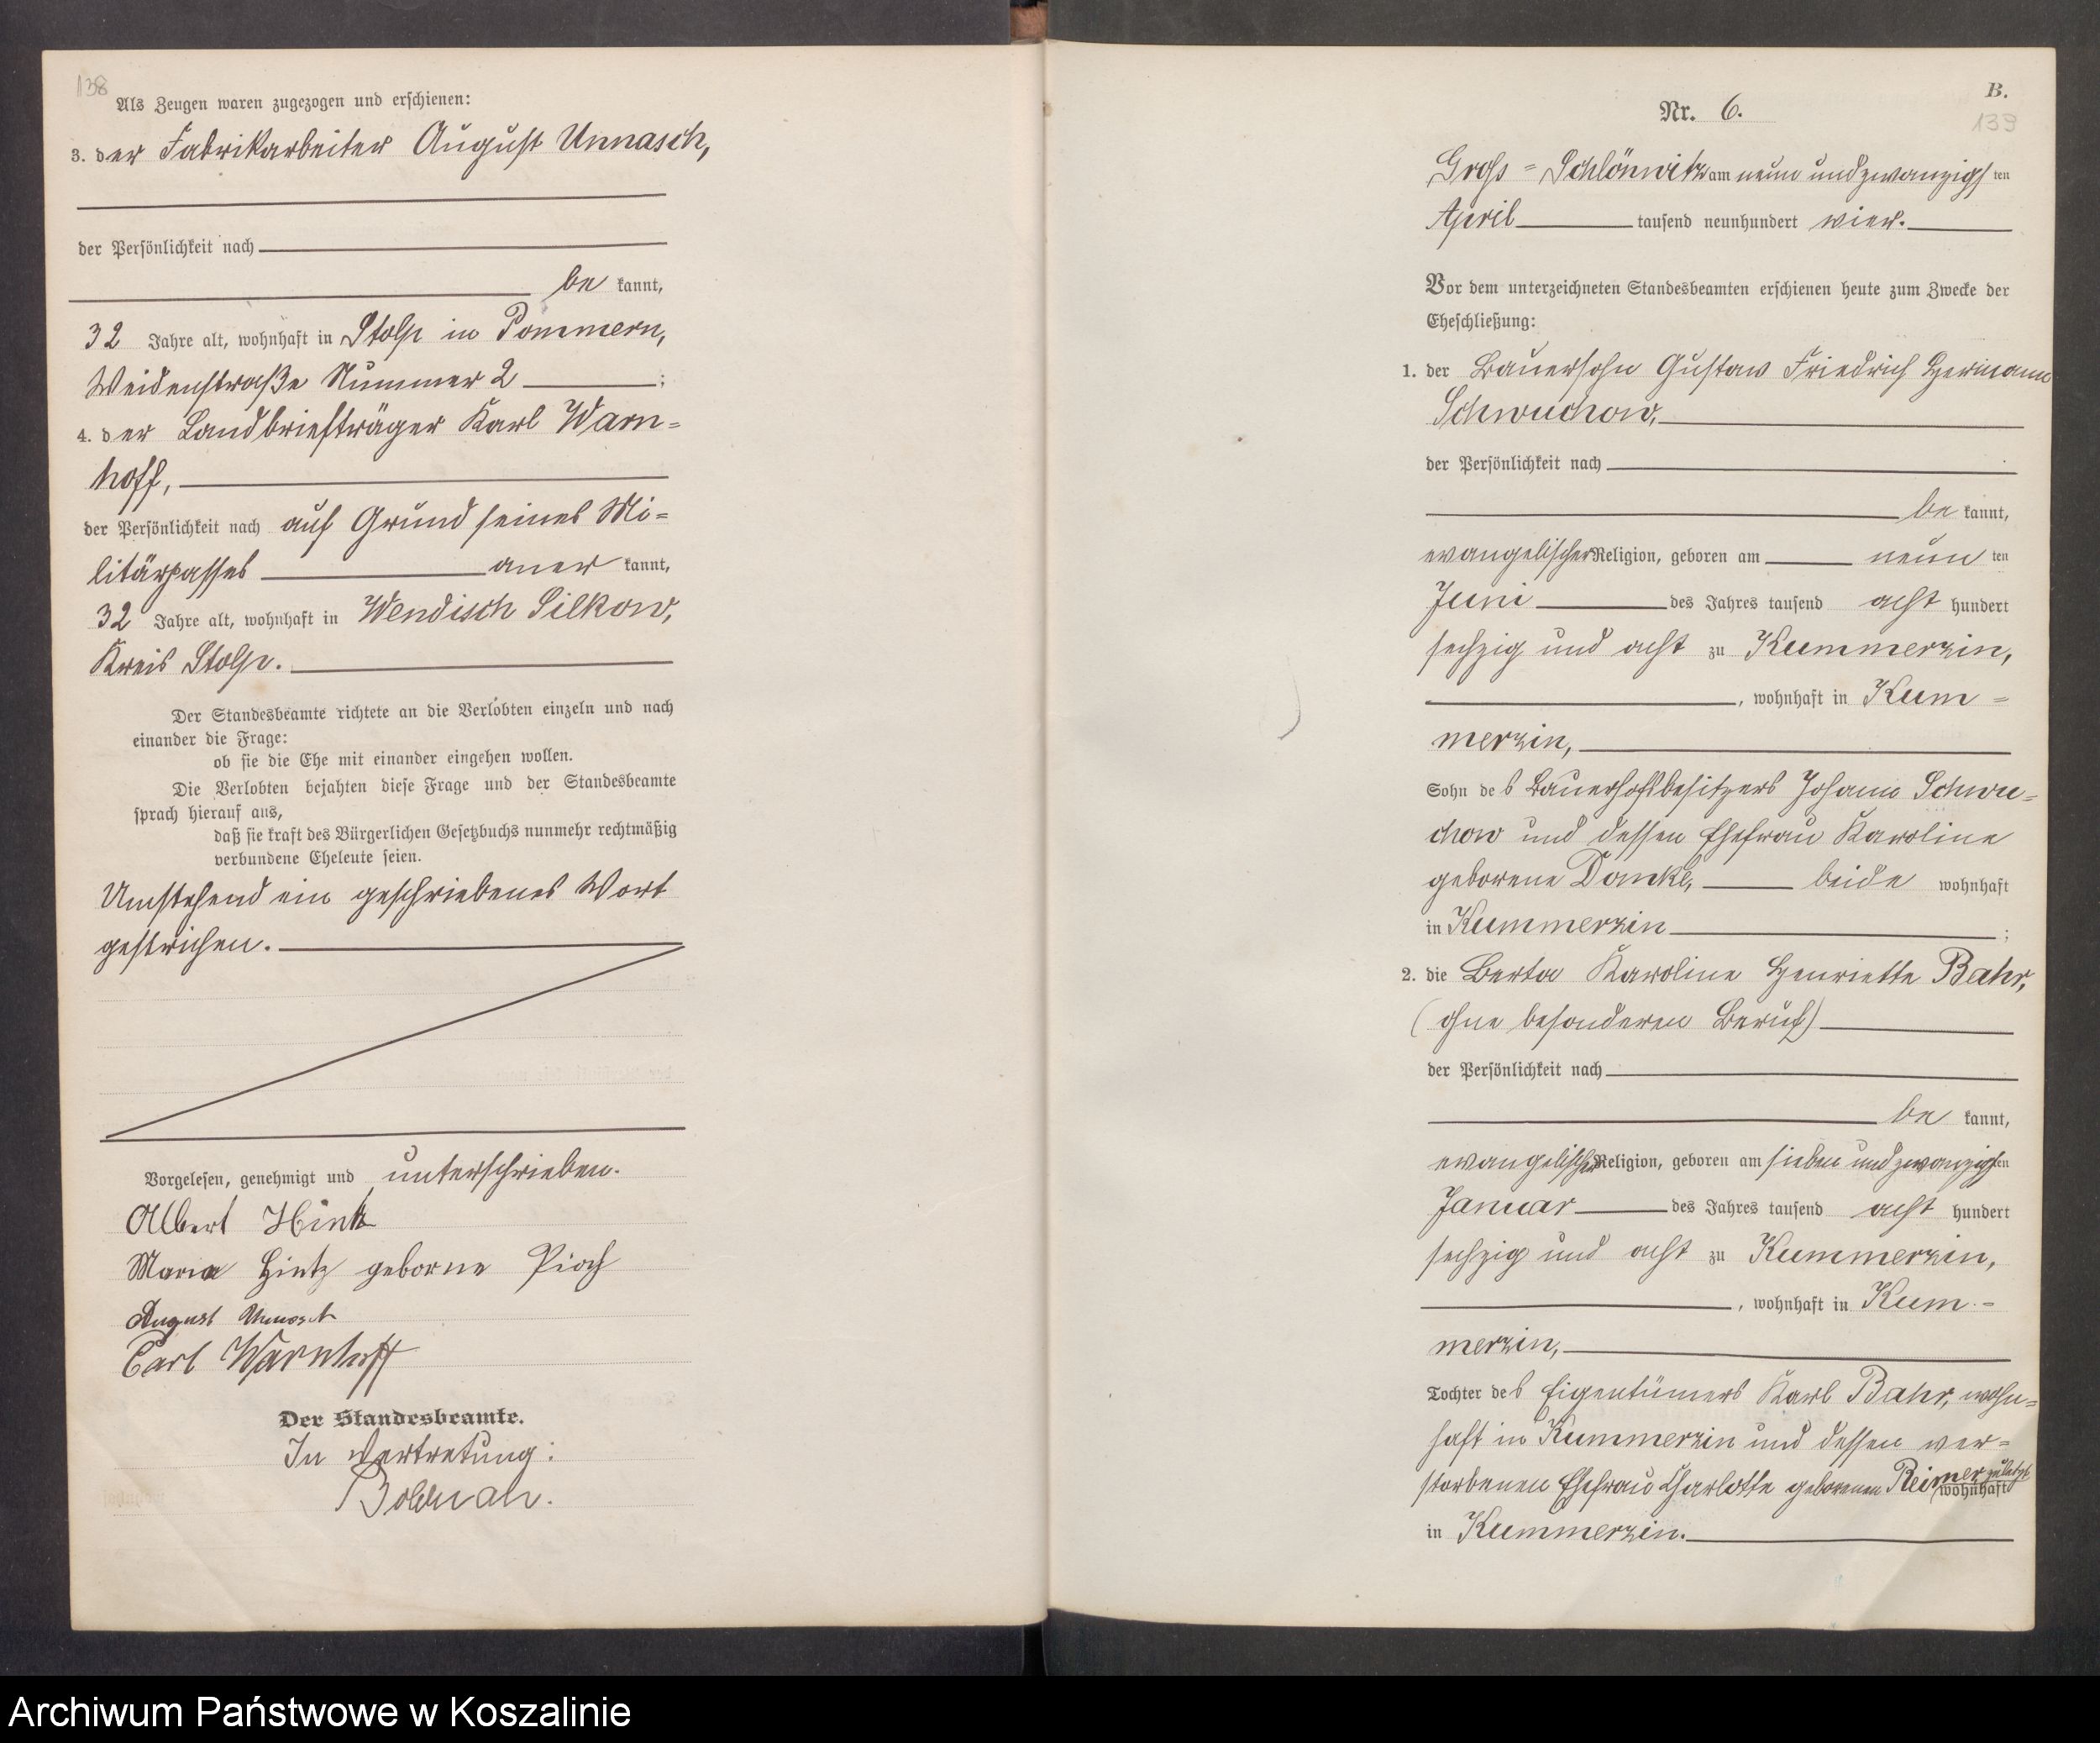 138
Als Zeugen waren zugezogen und erschienen:
3. der Fabrikarbeiter August Unnasch,
der Persönlichkeit nach
be kannt,
32 Jahre alt, wohnhaft in Stolp in Pommern,
Weidenstraße Nummer 2 ;
4. der Landbriefträger Karl Warn=
hoff,
der Persönlichkeit nach auf Grund seines Mi=
litärpasses aner kannt,
32 Jahre alt, wohnhaft in Wendisch Silkow,
Kreis Stolp.
Der Standesbeamte richtete an die Verlobten einzeln und nach
einander die Frage:
ob sie die Ehe mit einander eingehen wollen.
Die Verlobten bejahten diese Frage und der Standesbeamte
sprach hierauf aus,
daß sie kraft des Bürgerlichen Gesetzbuchs nunmehr rechtmäßig
verbundene Eheleute seien.
Umstehend ein geschriebenes Wort
gestrichen.
Vorgelesen, genehmigt und unterschrieben.
Albert Hintz
Maria Hintz geborne Pioch
August Unnasch
Carl Warnhoff
Der Standesbeamte.
In Vertretung:
B.
Nr. 6.
139
Gross=Schlönwitz am neun und zwanzigs ten
April tausend neunhundert vier.
Vor dem unterzeichneten Standesbeamten erschienen heute zum Zwecke der
Eheschließung:
1. der Bauersohn Gustav Friedrich Hermann
Schwuchow,
der Persönlichkeit nach
be kannt,
evangelischer Religion, geboren am neun ten
Juni des Jahres tausend acht hundert
sechzig und acht zu Kummerzin,
, wohnhaft in Kum=
merzin,
Sohn des Bauerhofsbesitzers Johann Schwu=
chow und dessen Ehefrau Karoline
geborene Domke, beide wohnhaft
in Kummerzin ;
2. die Berta Karoline Henriette Bahr,
(ohne besonderen Beruf)
der Persönlichkeit nach
be kannt,
evangelischer Religion, geboren am sieben und zwanzigsten
Januar des Jahres tausend acht hundert
sechzig und acht zu Kummerzin,
, wohnhaft in Kum=
merzin,
Tochter des Eigentümers Karl Bahr, wohn=
haft in Kummerzin und dessen ver=
storbenen Ehefrau Charlotte geborenen Reimer, zuletzt wohnhaft
in Kummerzin.
Archiwum Państwowe w Koszalinie